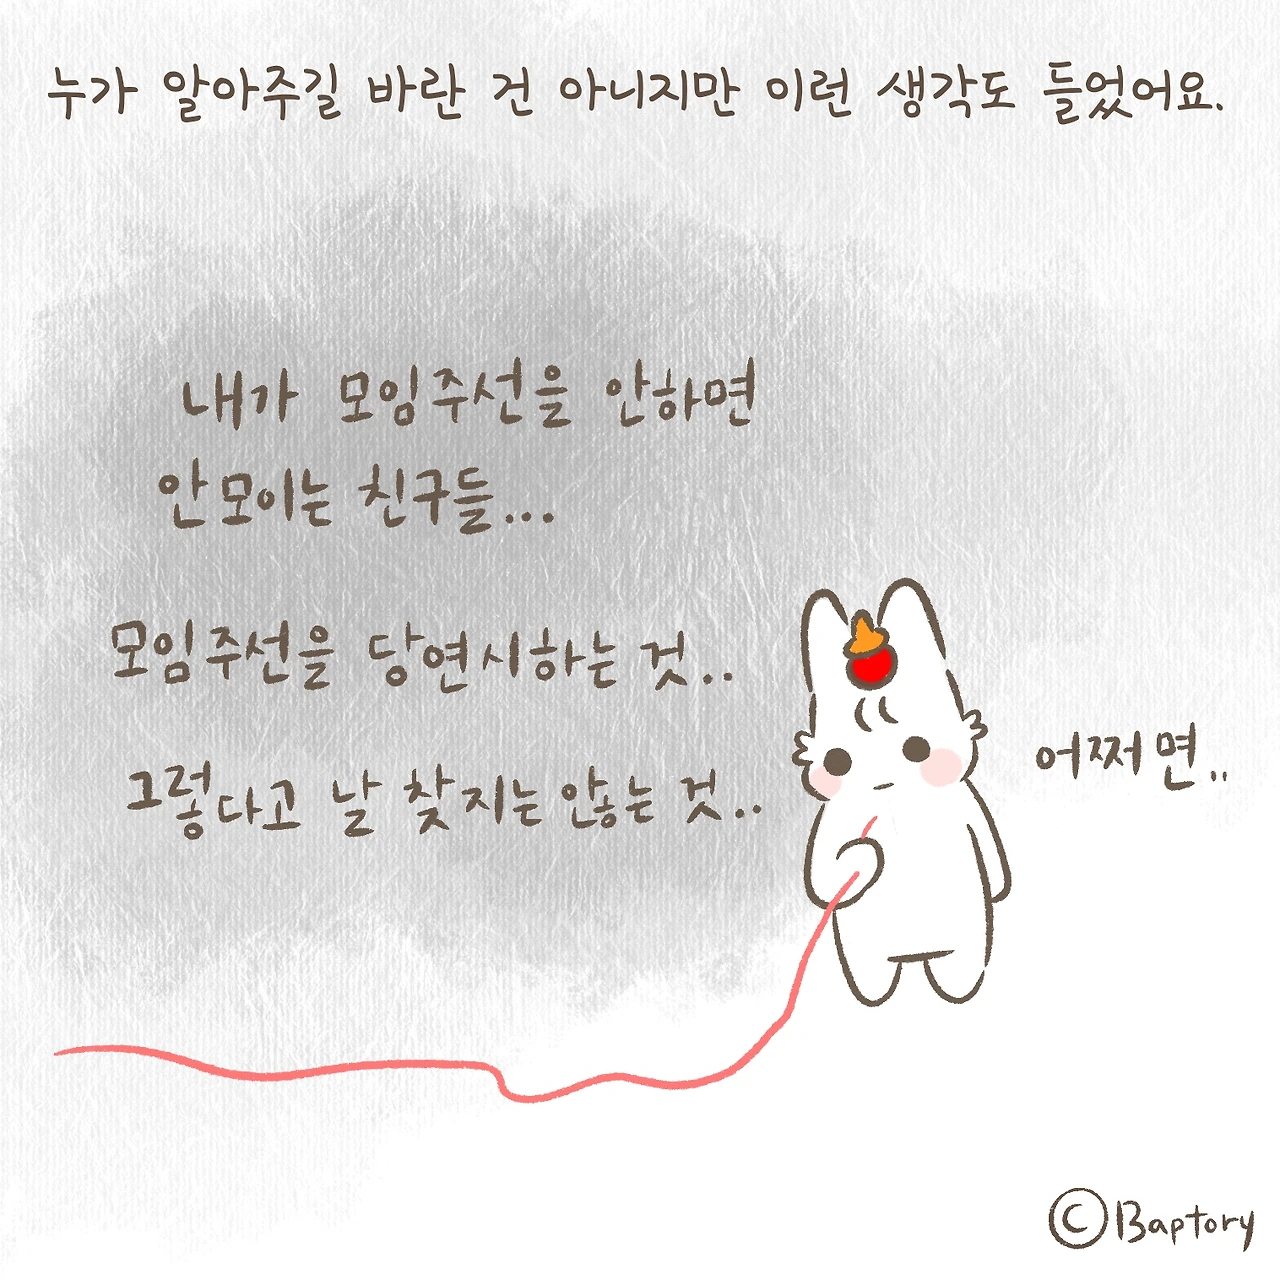 누가 알아주길 바란 건 아니지만 이런 생각도 들었어요.
내가 모임주선을 안하면
안모이는 친구들...
모임주선을 당연시하는 것..
그렇다고 날 찾지는 않는 것..
어쩌면..
©Baptory